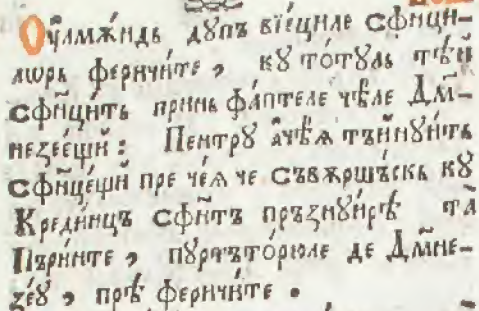 Оу҆рмѫ́ндь дꙋпъ вїе́циле сфи́нци-
лѡрь феричи́те , кꙋ то́тꙋль те́й
сфи́нцитъ при́нь фа́птеле че́ле Дм̃-
незее́щй : Пентрꙋ а҆че́ѧ тъ́йнꙋитъ
сфи́нцещй пре че́ѧ че съвѫршѣ́скь кꙋ
Креди́нцъ сфи́нтъ пръзнꙋи́рѣ та̀
Пъри́нте , пꙋртъто́рюле де Дм̃не-
зе́ꙋ , прѣ̀ феричи́те .